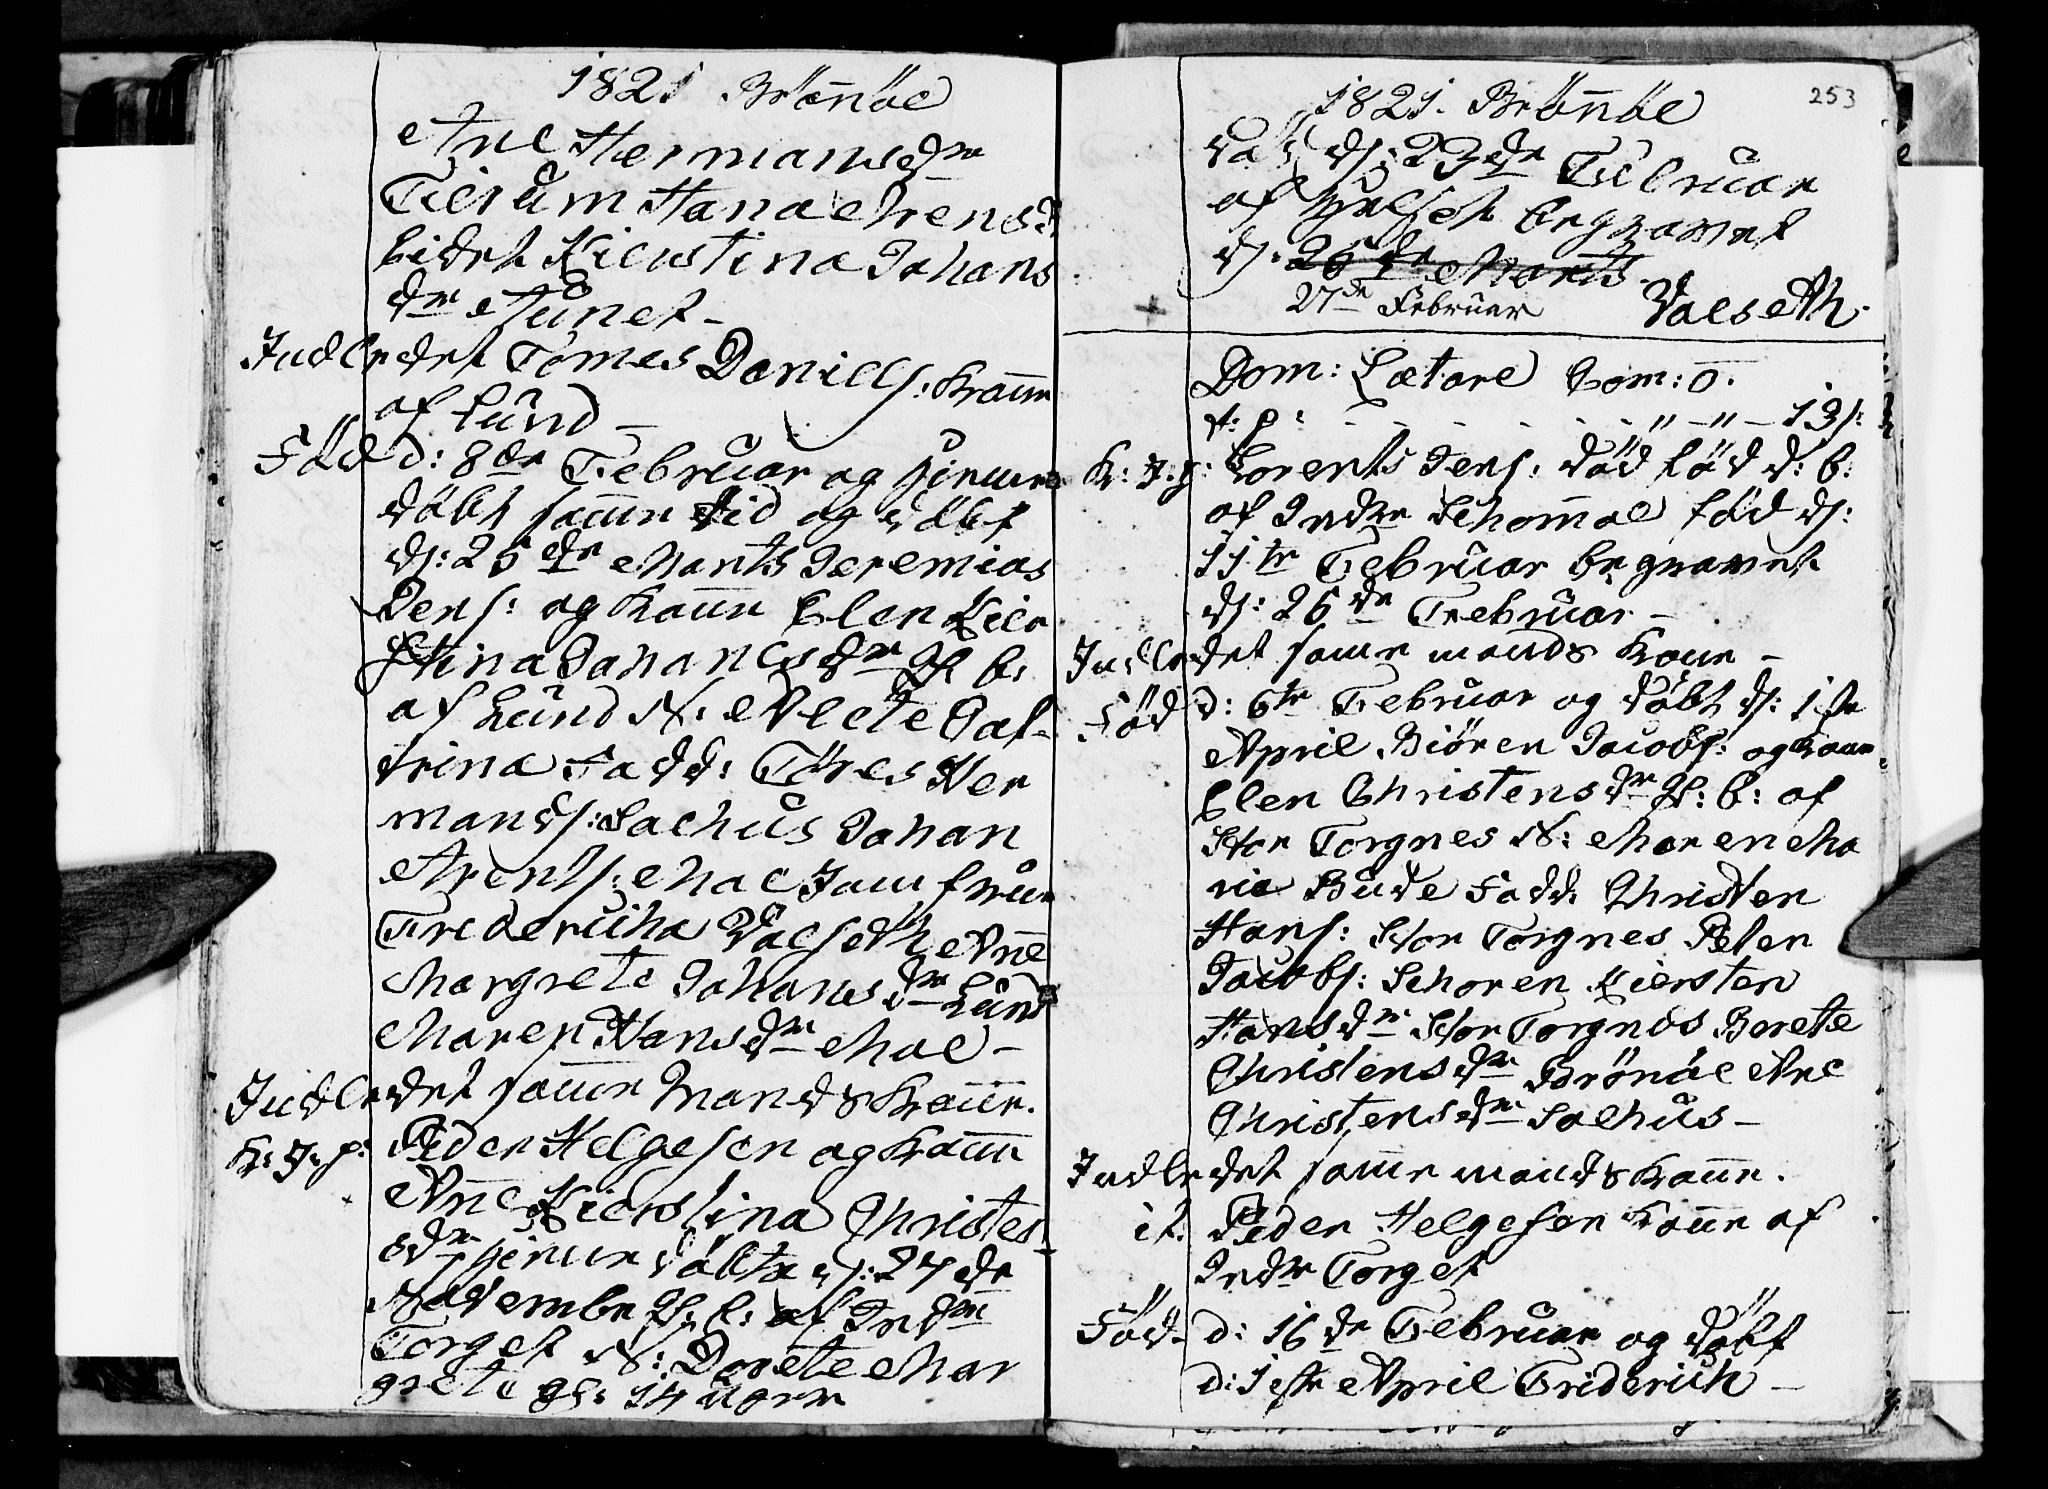 1821 Brönöe
Ane Hermansdr
Tilrum Hana Arensd
bidet Kierstina Johans
dr Tunet -
Indledet Tomes Daniels: Kone
af Lund -
Föd d: 8de Februar og hiemme
döbt samme tid og döbt
d: 25de Marts Jeremias
Jens: og Kone Elen Kier
stina Johanesdr Æ b:
af Lund N: Alete Cat-
trina Fadd: Töres Her
mands: Salhus Johan
Arents: Moe Jomfrue
Fredericha Valseth Ane
Margrete Johansdr Lund
Maren Hansdr Moe -
Indledet samme Mands Kone.
K: J. p: Peder Helgesen og Kone
Ane Kierstina Christes
sdr hiemmedöbte d: 27de
November Æ: b: af Indre
Torget N: Dorete Mar
grete gl: 14 uger
253
1821. Brönöe
död d: 23de Februar
af begravet
d: 26de Marts
27de Februar Valseth.
Dom: Lætare Com: 0.
f: p: - - - - - " - " - 13 s:
K: J. p: Lorents Jens: död föd d: b:
af Indre Schomoe föd d:
11te Februar begravet
d: 26de Februar -
Indledet samme mands Kone -
Föd d: 6te Februar og döbt d: 1ste
April Biören Jacobs: og Kone
Elen Christensdr Æ: b: af
Stor Torgnes N: Maren Ma
rie Bude Fadd: Christen
Hans: Stor Torgnes Peter
Jacobs: Schoren Kiersten
Hansdr Stor Torgnes Berete
Christensdr Brönöe Ane
Christensdr Salhus -
Indledet samme mands Kone.
it. Peder Helgesen Kone af
Indre Torget
Föd d: 16de Februar og döbt
d: 1ste April Friderich -